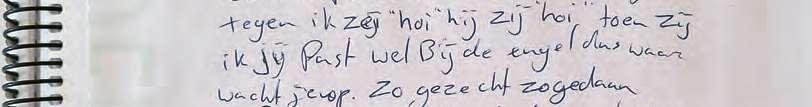 tegen ik zeij "hoi" hij zij "hoi" toen zij
ik jij Past wel Bij de engel dus waar
wacht je op. Zo gezecht zo gedaan